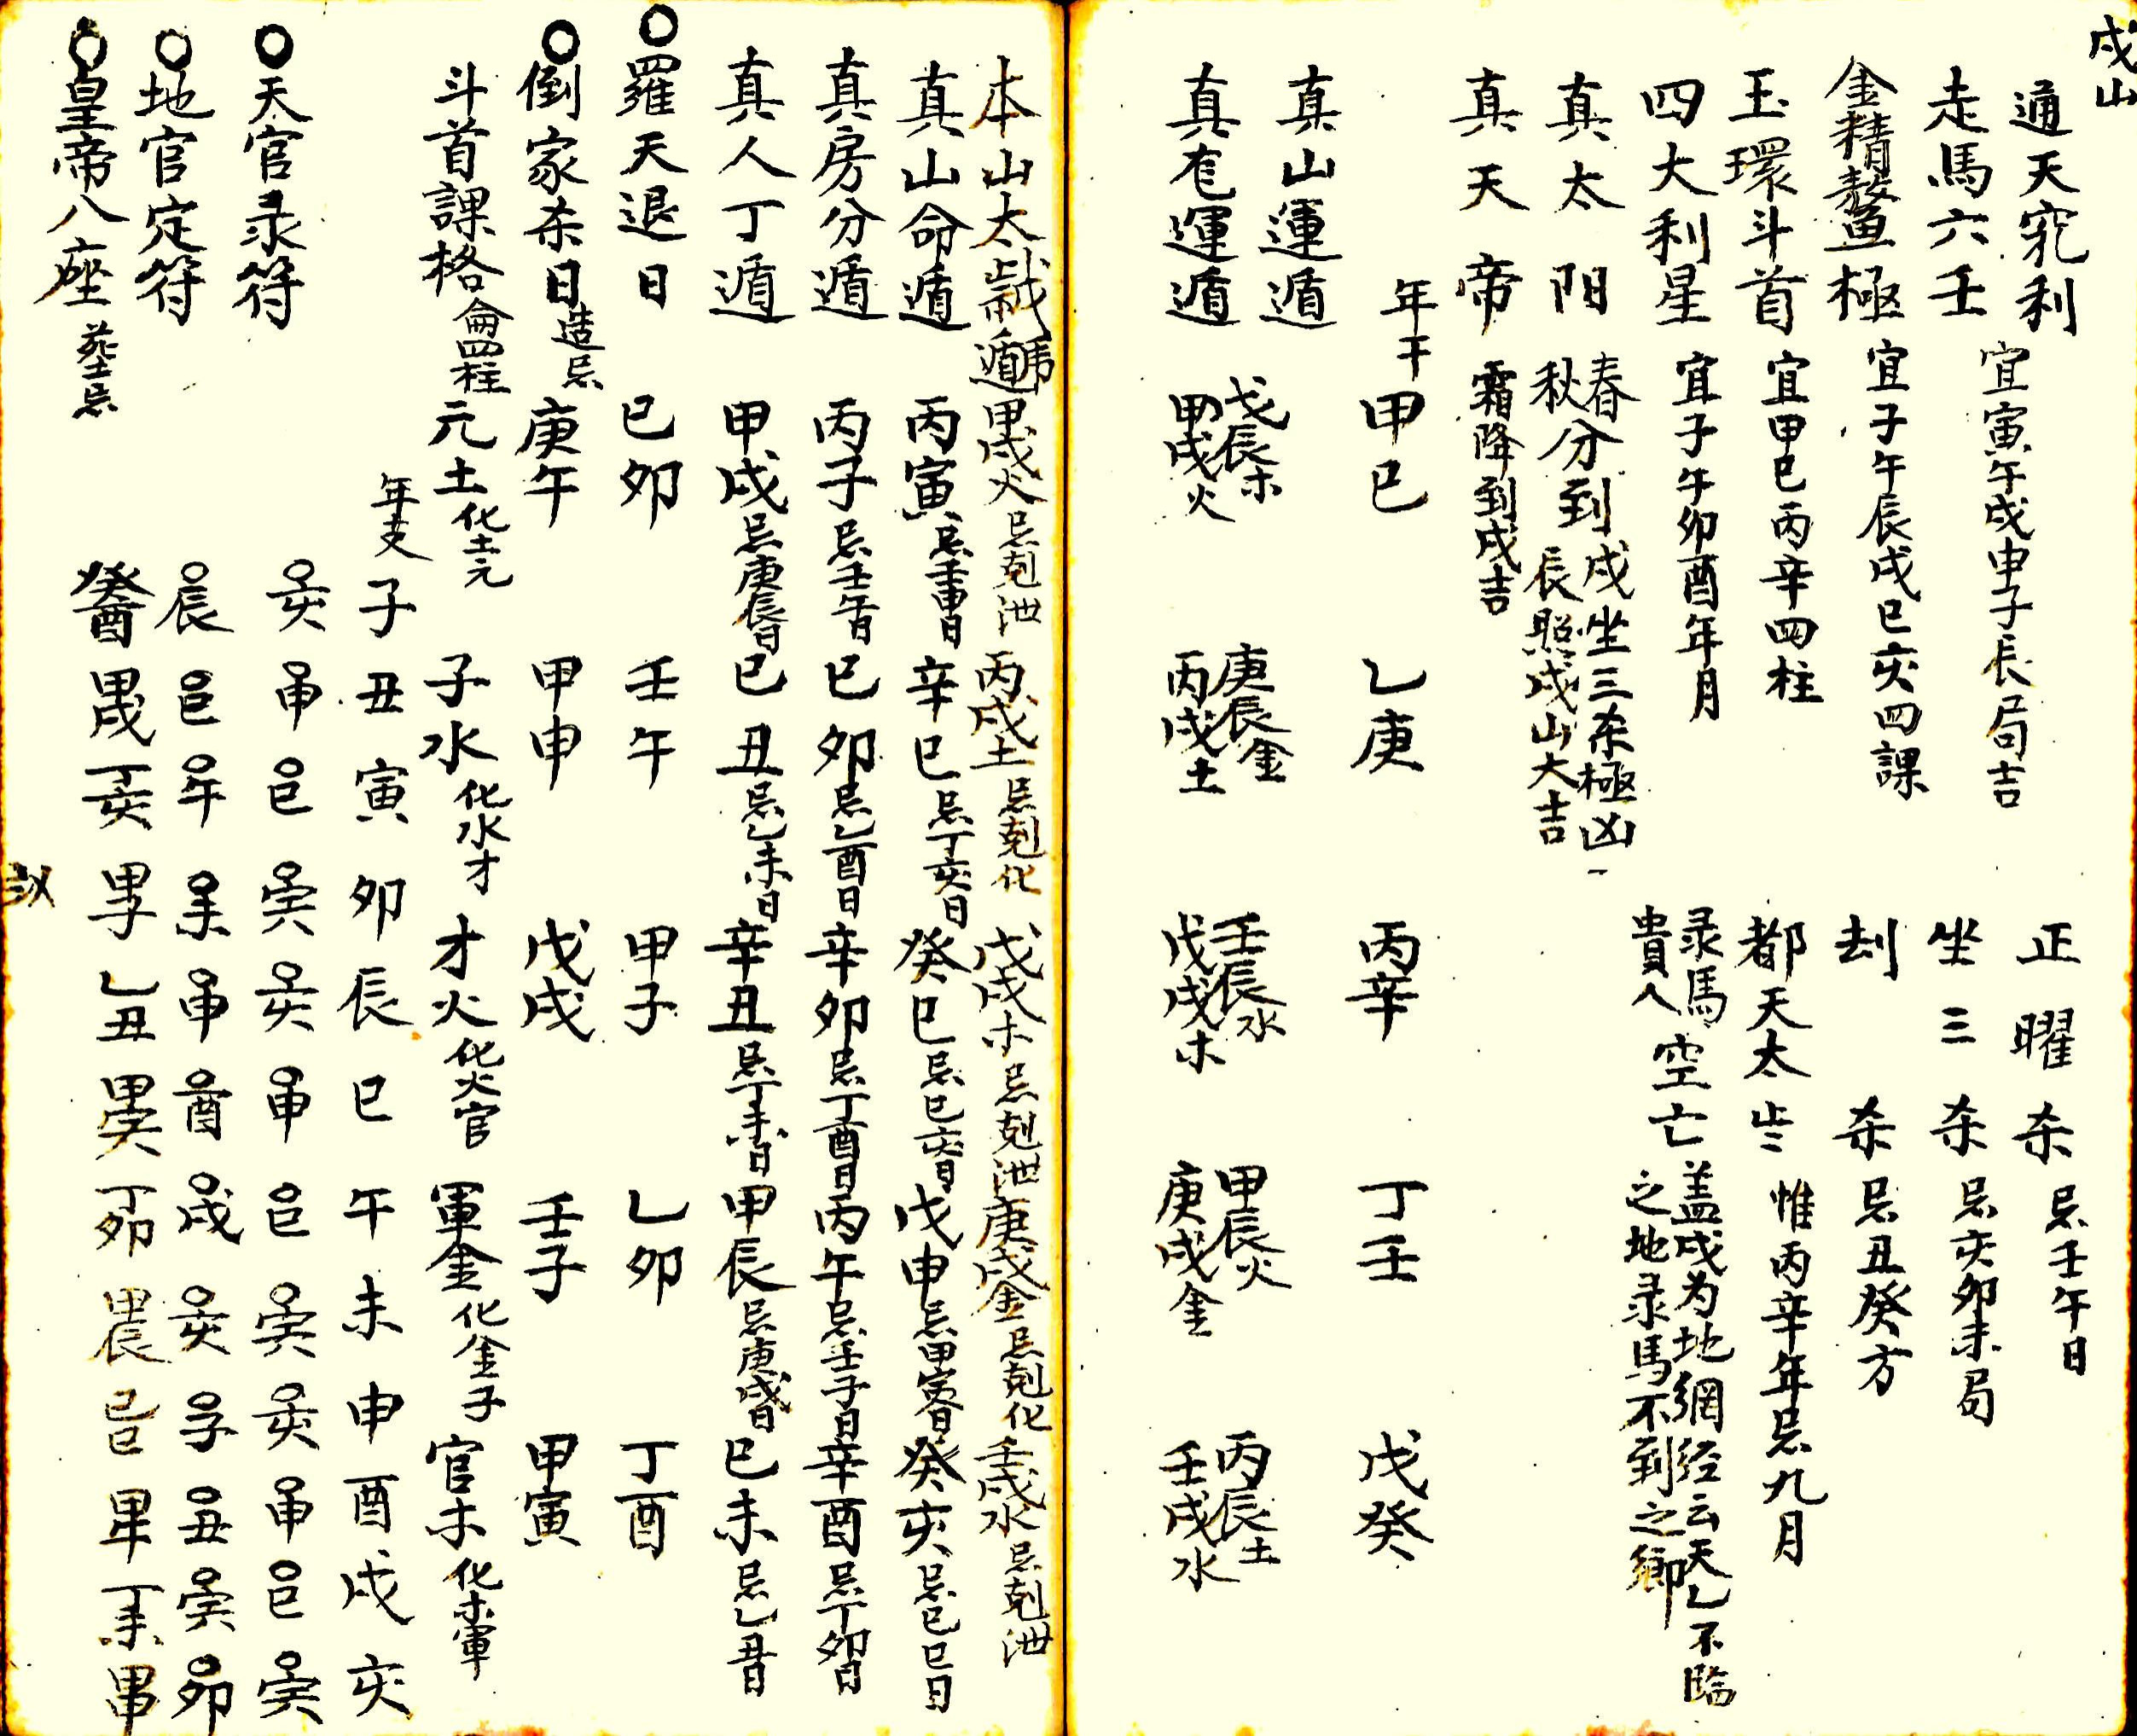 戌山
通天竅利 宜寅午戌申子辰局吉 正曜杀 忌壬午日
走馬六壬 坐三杀 忌亥卯未局
金精鰲極 宜子午辰戌巳亥四課 刦杀 忌丑癸方
玉環斗首 宜甲己丙辛四柱 都天太歲 惟丙辛年忌九月
四大利星 宜子午卯酉年月 录馬貴人空亡 盖戌为地網经云天乙不臨之地录馬不到之鄉
真太阳 春秋分到戌坐三杀極凶 辰照戌山大吉
真天帝 霜降到戌吉
年干 甲己 乙庚 丙辛 丁壬 戊癸
真山運遁 戊辰木 庚辰金 壬辰水 甲辰火 丙辰土
真龙運遁 甲戌火 丙戌土 戊戌木 庚戌金 壬戌水
本山太歲遁 甲戌火 忌剋泄 丙戌土 忌剋化 戊戌木 忌剋泄 庚戌金 忌剋化 壬戌水 忌剋泄
真山命遁 丙寅 忌壬申日 辛巳 忌丁亥日 癸巳 忌己亥日 戊申 忌甲寅日 癸亥 忌己巳日
真房分遁 丙子 忌壬午日 己卯 忌乙酉日 辛卯 忌丁酉日 丙午 忌壬子日 辛酉 忌丁卯日
真人丁遁 甲戌 忌庚辰日 己丑 忌乙未日 辛丑 忌丁未日 甲辰 忌庚戌日 己未 忌乙丑日
羅天退日 己卯 壬午 甲子 乙卯 丁酉
倒家杀日 造忌 庚午 甲申 戊戌 壬子 甲寅
斗首課格 侖四柱 元土 化土元 子水 化水才 才火 化火官 軍金 化金子 官木 化木軍
年支 子 丑 寅 卯 辰 巳 午 未 申 酉 戌 亥
天官录符 亥 申 巳 寅 亥 申 巳 寅 亥 申 巳 寅
地官定符 辰 巳 午 未 申 酉 戌 亥 子 丑 寅 卯
皇帝八座 葬忌 癸酉 甲戌 丁亥 甲子 乙丑 甲寅 丁卯 甲辰 己巳 甲午 丁未 甲申